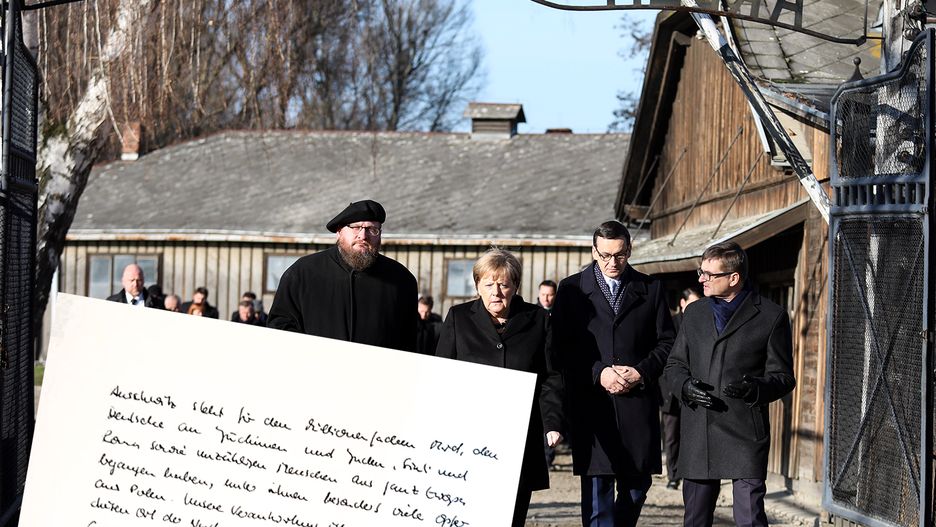 Auschwitz steht für den millionenfachen Mord, den
Deutsche an Jüdinnen und Juden, Sinti und
Roma sowie unzähligen Menschen aus ganz Europa
begangen haben, unter ihnen besonders viele Opfer
aus Polen. Unsere Verantwortung